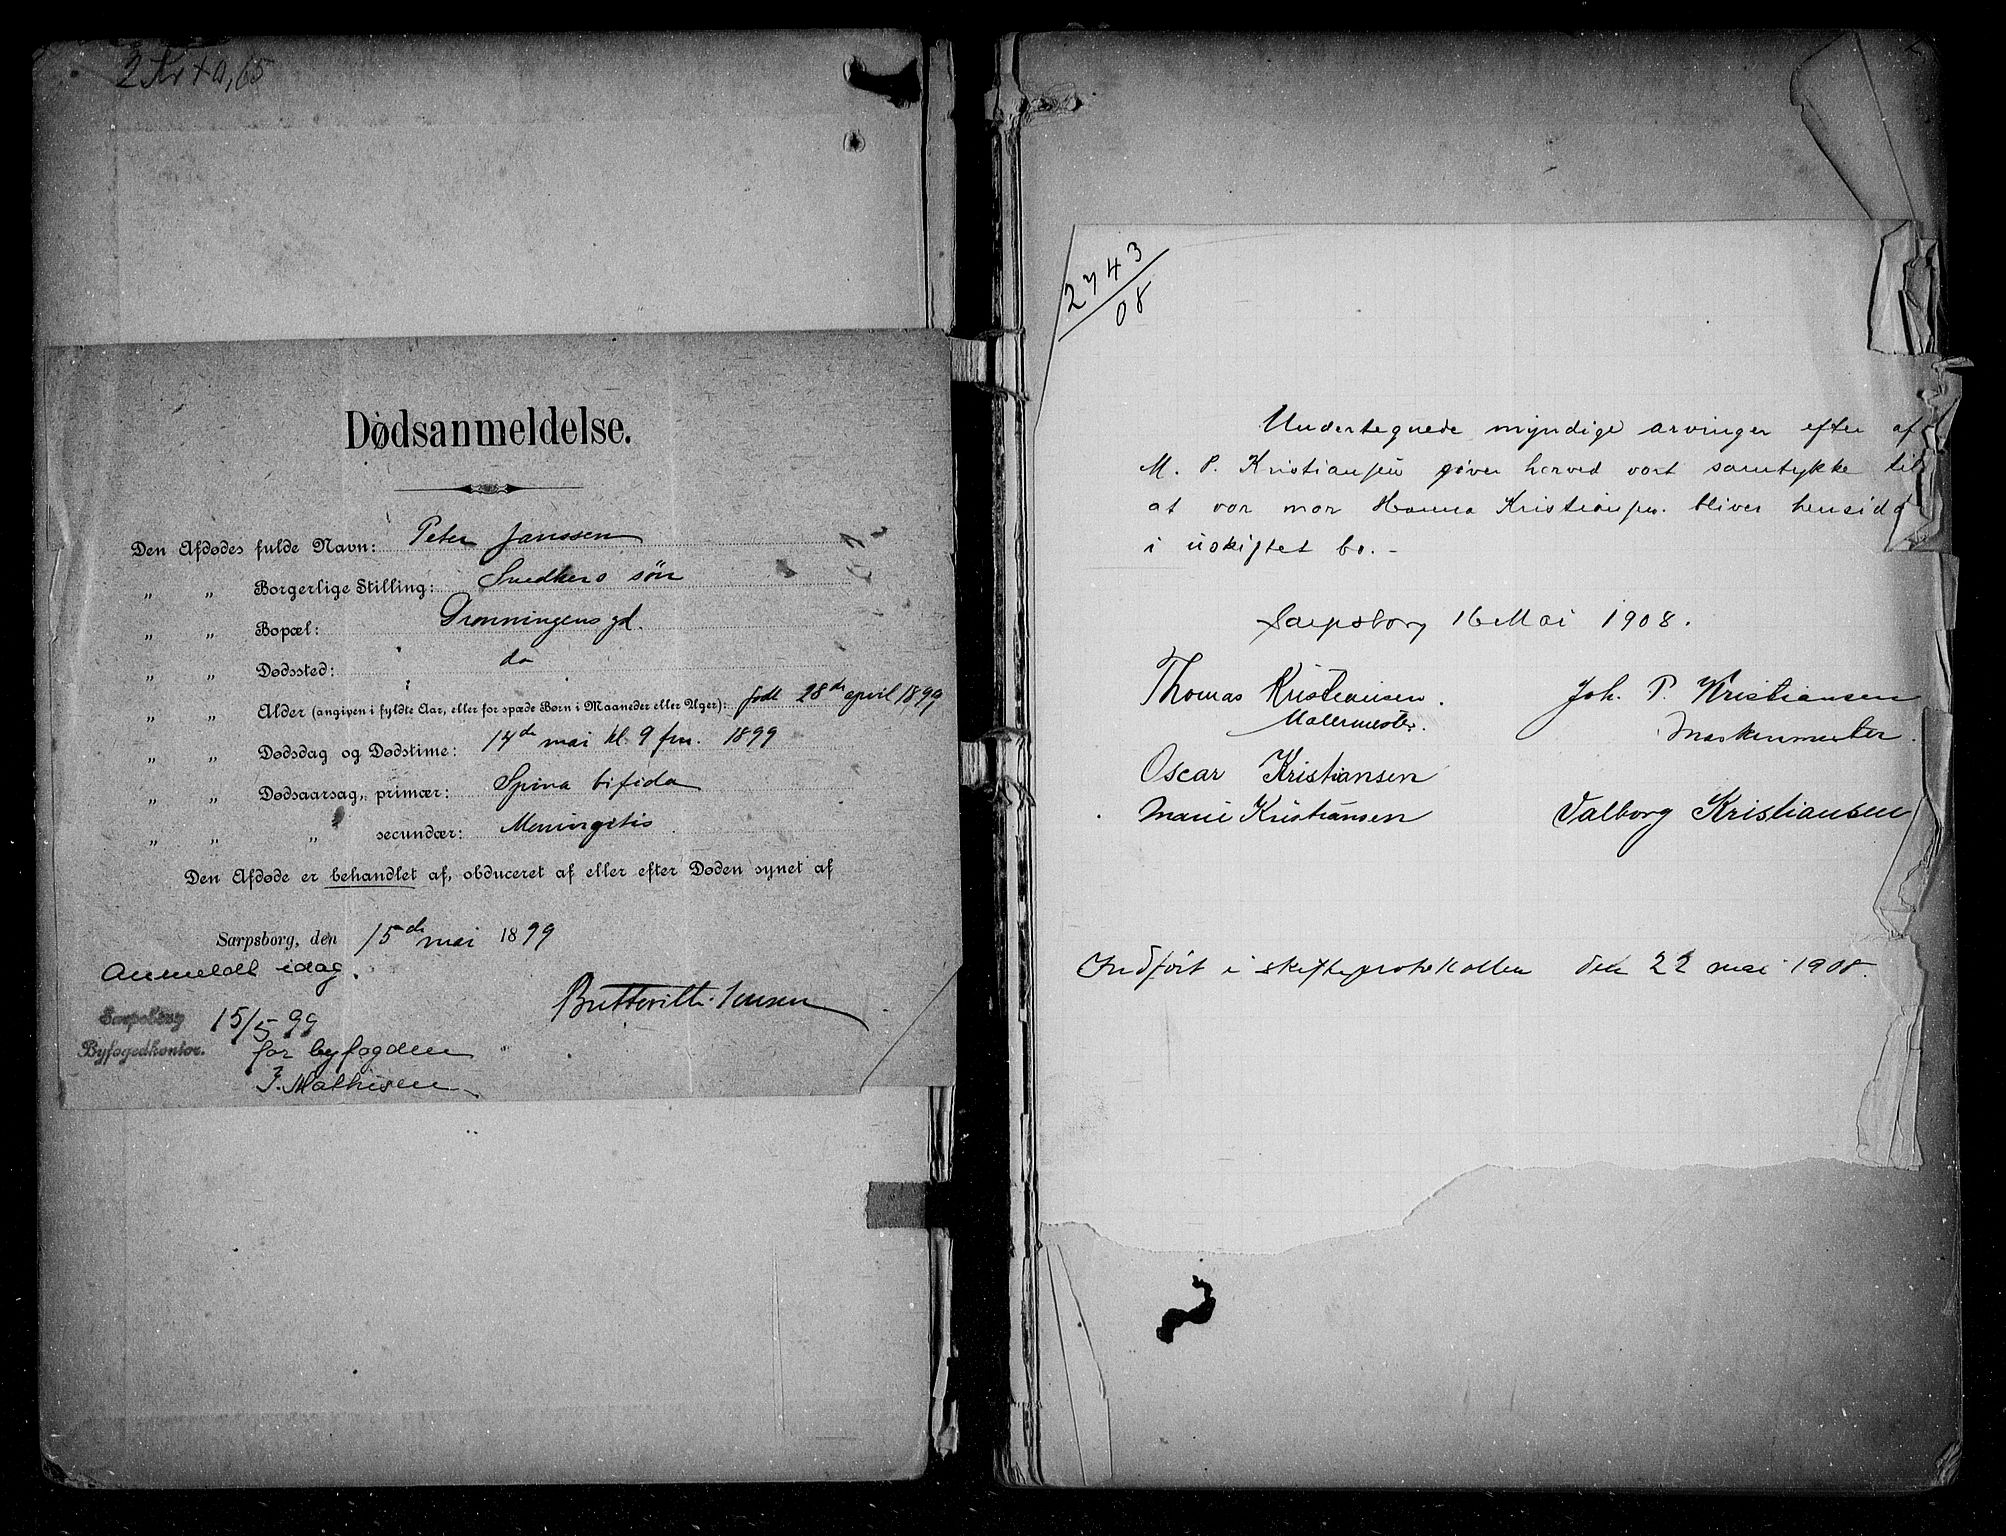 2 Kr + 0,65
Dødsanmeldelse.
Den Afdødes fulde Navn: Peter Janssen
„ „ Borgerlige Stilling: Snedkers søn
„ „ Bopæl: Grønningens gd.
„ „ Dødssted: do
„ „ Alder (angiven i fyldte Aar, eller for spæde Børn i Maaneder eller Uger): født 28de april 1899
„ „ Dødsdag og Dødstime: 14de mai kl. 9 fm. 1899
„ „ Dødsaarsag, primær: Spina bifida
„ „ „ secundær: Meningitis
Den Afdøde er behandlet af, obduceret af eller efter Døden synet af
Sarpsborg, den 15de mai 1899
Anmeldt idag.
Jensen
Sarpsborg
Byfogedkontor. 15/5 99
for byfogden
J. Mathisen
2743
08
Undertegnede myndige arvinger efter af
M. P. Kristiansen giver herved vort samtykke til
at vor mor Hanna Kristiansen bliver hensidd
i uskiftet bo. -
Sarpsborg 16 Mai 1908.
Thomas Kristiansen. Joh. P. Kristiansen
Malermester. Maskinmester.
Oscar Kristiansen
Marie Kristiansen Valborg Kristiansen
Indført i skifteprotokollen den 22 mai 1908.